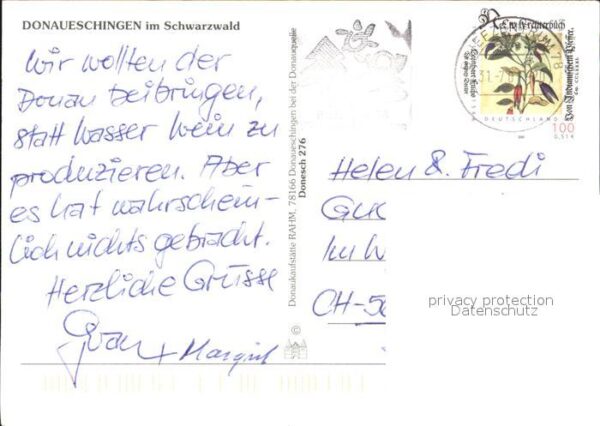 DONAUESCHINGEN im Schwarzwald
Wir wollten der
Donau beibringen,
statt Wasser Wein zu
produzieren. Aber
es hat wahrschein-
lich nichts gebracht.
Herzliche Grüsse
+ Margrit
Donaukaufstätte RAHM, 78166 Donaueschingen bei der Donauquelle
Donesch 276
©
DEUTSCHLAND
100
0,51 €
Helen & Fredi
Im W
CH-56
privacy protection
Datenschutz